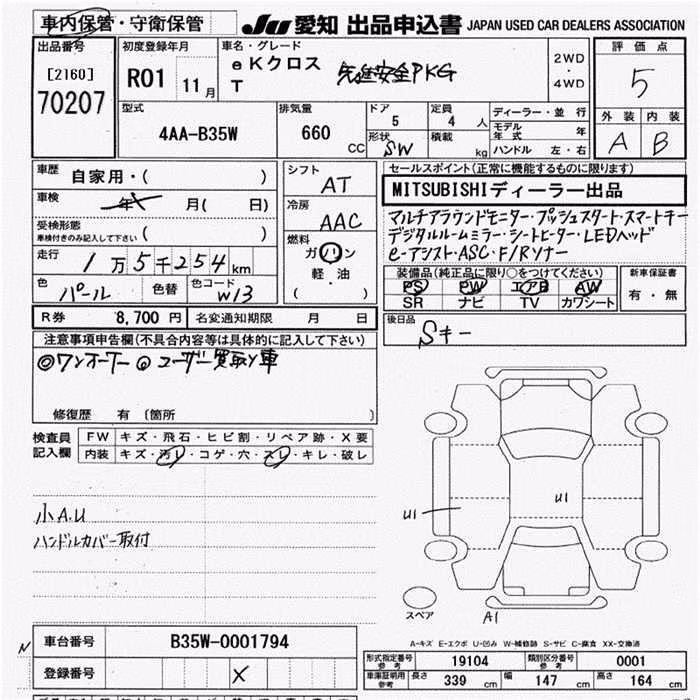 車内保管・守衛保管
JU 愛知 出品申込書 JAPAN USED CAR DEALERS ASSOCIATION
出品番号
[2160]
70207
初度登録年月
R01 11月
車名・グレード
eKクロス
T 先進安全PKG
2WD
・
4WD
評価点
5
外装 内装
A B
型式
4AA-B35W
排気量
660 CC
ドア
5
形状
SW
定員
4 人
積載
kg
ディーラー・並行
モデル年式 年
ハンドル 左・右
車歴
自家用・( )
車検
年 月( 日)
受検形態
車検付きのみ記入して下さい ( )
走行
1万5千254km
色
パール
色替
色コード
W13
シフト
AT
冷房
AAC
燃料
ガソリン
軽・油
( )
セールスポイント(正常に機能するものに限ります)
MITSUBISHIディーラー出品
マルチアラウンドモニター・プッシュスタート・スマートキー
デジタルルームミラー・シートヒーター・LEDヘッド
e-アシスト・ASC・F/Rソナー
装備品(純正品に限り○をつけてください)
PS PW エアB AW
SR ナビ TV カワシート
新車保証書
有・無
R券 8,700 円 名変通知期限 月 日
後日品
Sキー
注意事項申告欄(不具合内容等は具体的に記入して下さい)
◎ワンオーナー ◎ユーザー買取り車
修復歴 有 〔箇所 〕
検査員
記入欄
FW キズ・飛石・ヒビ割・リペア跡・X要
内装 キズ・汚レ・コゲ・穴・スレ・キレ・破レ
小A.U
ハンドルカバー取付
U1
U1
スペア
A1
A-キズ E-エクボ U-凹み W-補修跡 S-サビ C-腐食 XX-交換済
N
車台番号 B35W-0001794
登録番号 X
形式指定番号
参考
19104
類別区分番号
参考
0001
車庫証明用
参考
長さ 339 cm 幅 147 cm 高さ 164 cm